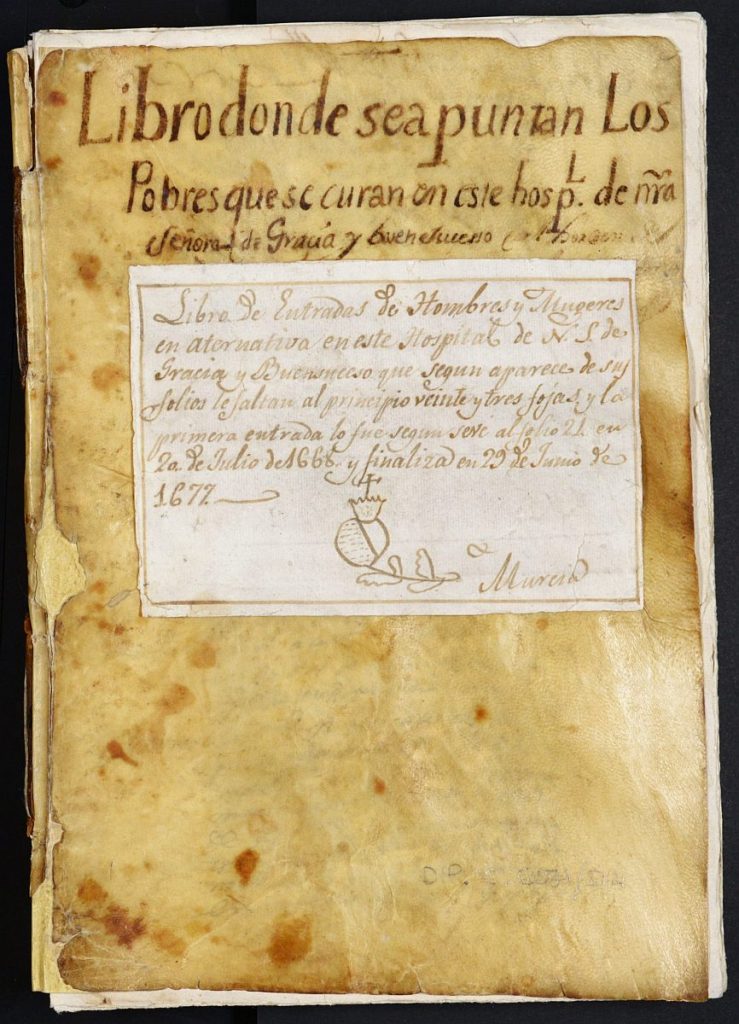 Libro donde se apuntan Los
Pobres que se curan en este hospL. de nrã
señora de Gracia y buen sucesso
Libro de Entradas de Hombres y Mugeres
en aternativa en este Hospital de N. S. de
Gracia y Buensuceso que segun aparece de sus
folios le faltan al principio veinte y tres fojas, y la
primera entrada lo fue segun se ve al folio 21 en
20. de Julio de 1668. y finaliza en 29 de Junio de
1677
Murcia